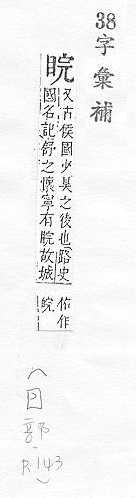 38字彙補
晥
又古侯國少昊之後也路史
國名記舒之懷寧有晥故城
俗作
皖
(日部 P.143)